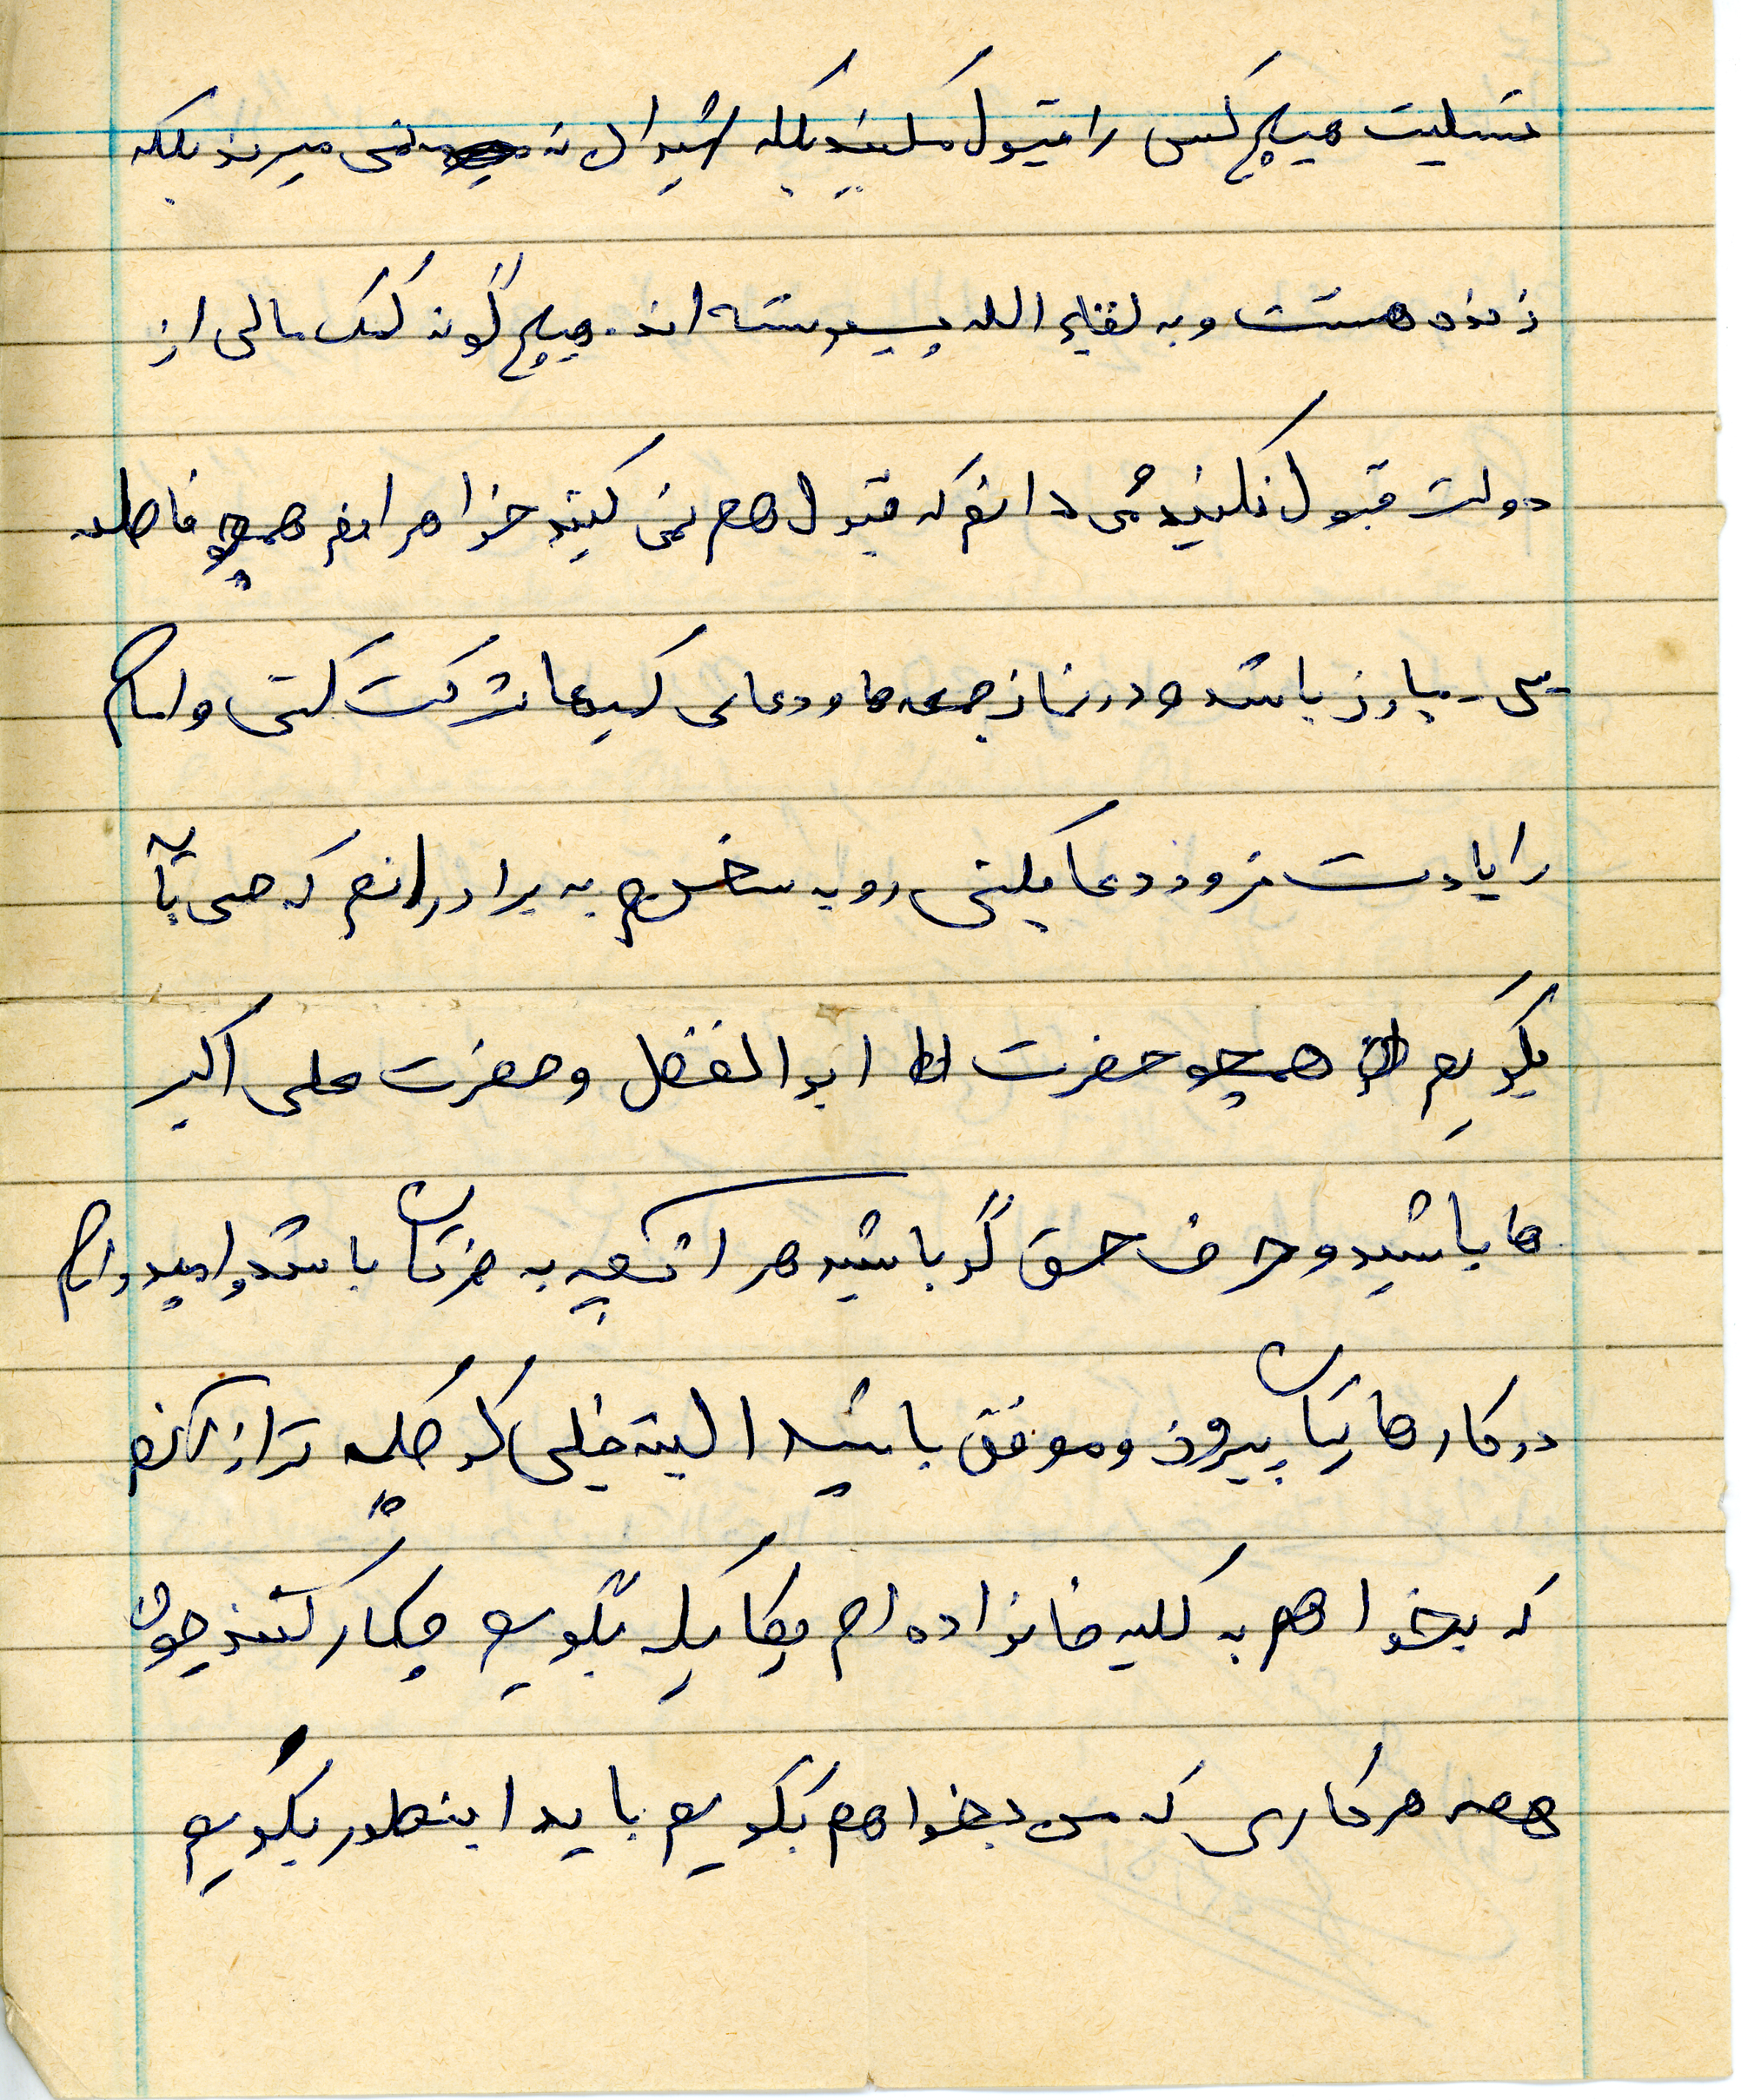 تسلیت هیچ کس را قبول نکنید بلکه شیدان نه نمی میرند بلکه
زنده هستند و به لقاء الله پیوسته اند. هیچ گونه کمک مالی از
دولت قبول نکنید می دانم که قبول هم نمی کنید خواهرانم همچو فاطمه
مبارز باشد و در نماز جمعه ها و دعای کمیل ها شرکت کنی و امام
را یادت نرود دعا بکنی رو به سخنم به برادرانم که می یا
بگویم همچو حضرت ابوالفضل و حضرت علی اکبر
ها باشید و حرف حق گو باشید هر آنچه به ضرتان باشد و امیدوارم
در کار هایتان پیروز و موفق باشید البته خیلی کوچک تر از آنم
که بخواهم به کلیه خانواده ام یکایک بگویم چکار کنند چون
همه هر کاری که من بخواهم بگویم باید اینطور بگویم